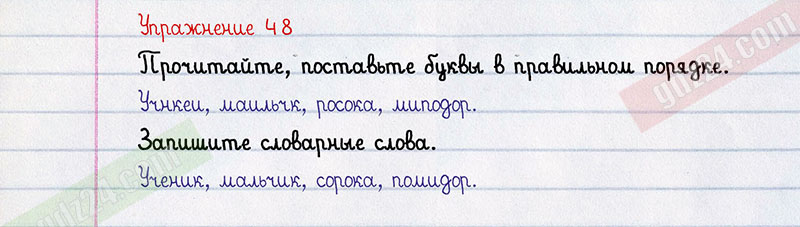 Упражнение 48
Прочитайте, поставьте буквы в правильном порядке.
Учнкеи, маильчк, росока, миподор.
Запишите словарные слова.
Ученик, мальчик, сорока, помидор.
gdz24.com
gdz24.com